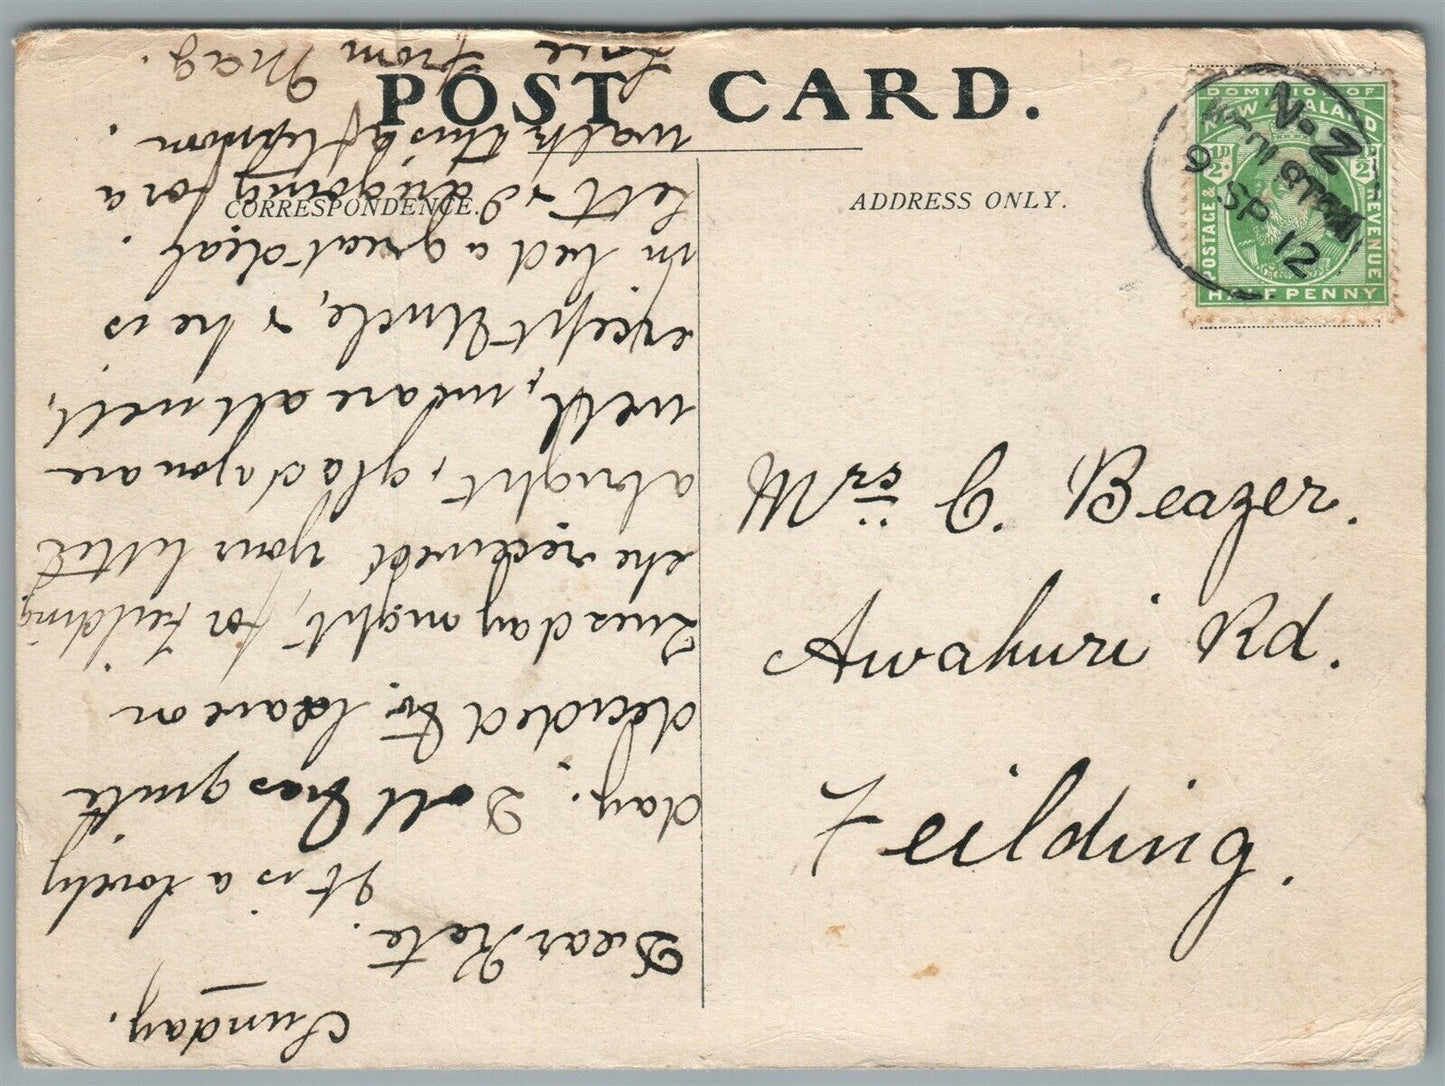 POST CARD.
CORRESPONDENCE.
ADDRESS ONLY.
DOMINION OF
NEW ZEALAND
½D.
½D.
POSTAGE &
REVENUE
HALF PENNY
N.Z
9
SP
12
Mrs C. Beazer.
Awahuri Rd.
Feilding.
Sunday.
Dear Kate.
It is a lovely
day. Doll has quite
decided to leave on
Tuesday night, for Feilding
she received your letter
alright, glad you are
well, we are all well,
except Uncle, & he is
in bed a great deal.
Lett & I are going for a
walk this afternoon.
Love
from Mag.